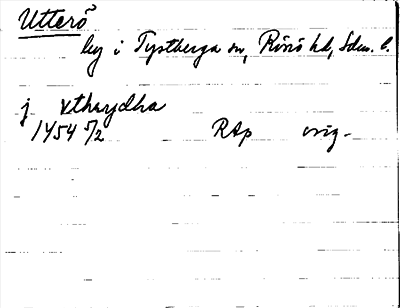 Utterö
by i Tystberga sn, Rönö hd, Sdm. l.
j vtherydha
1454 5/2 RAp orig.